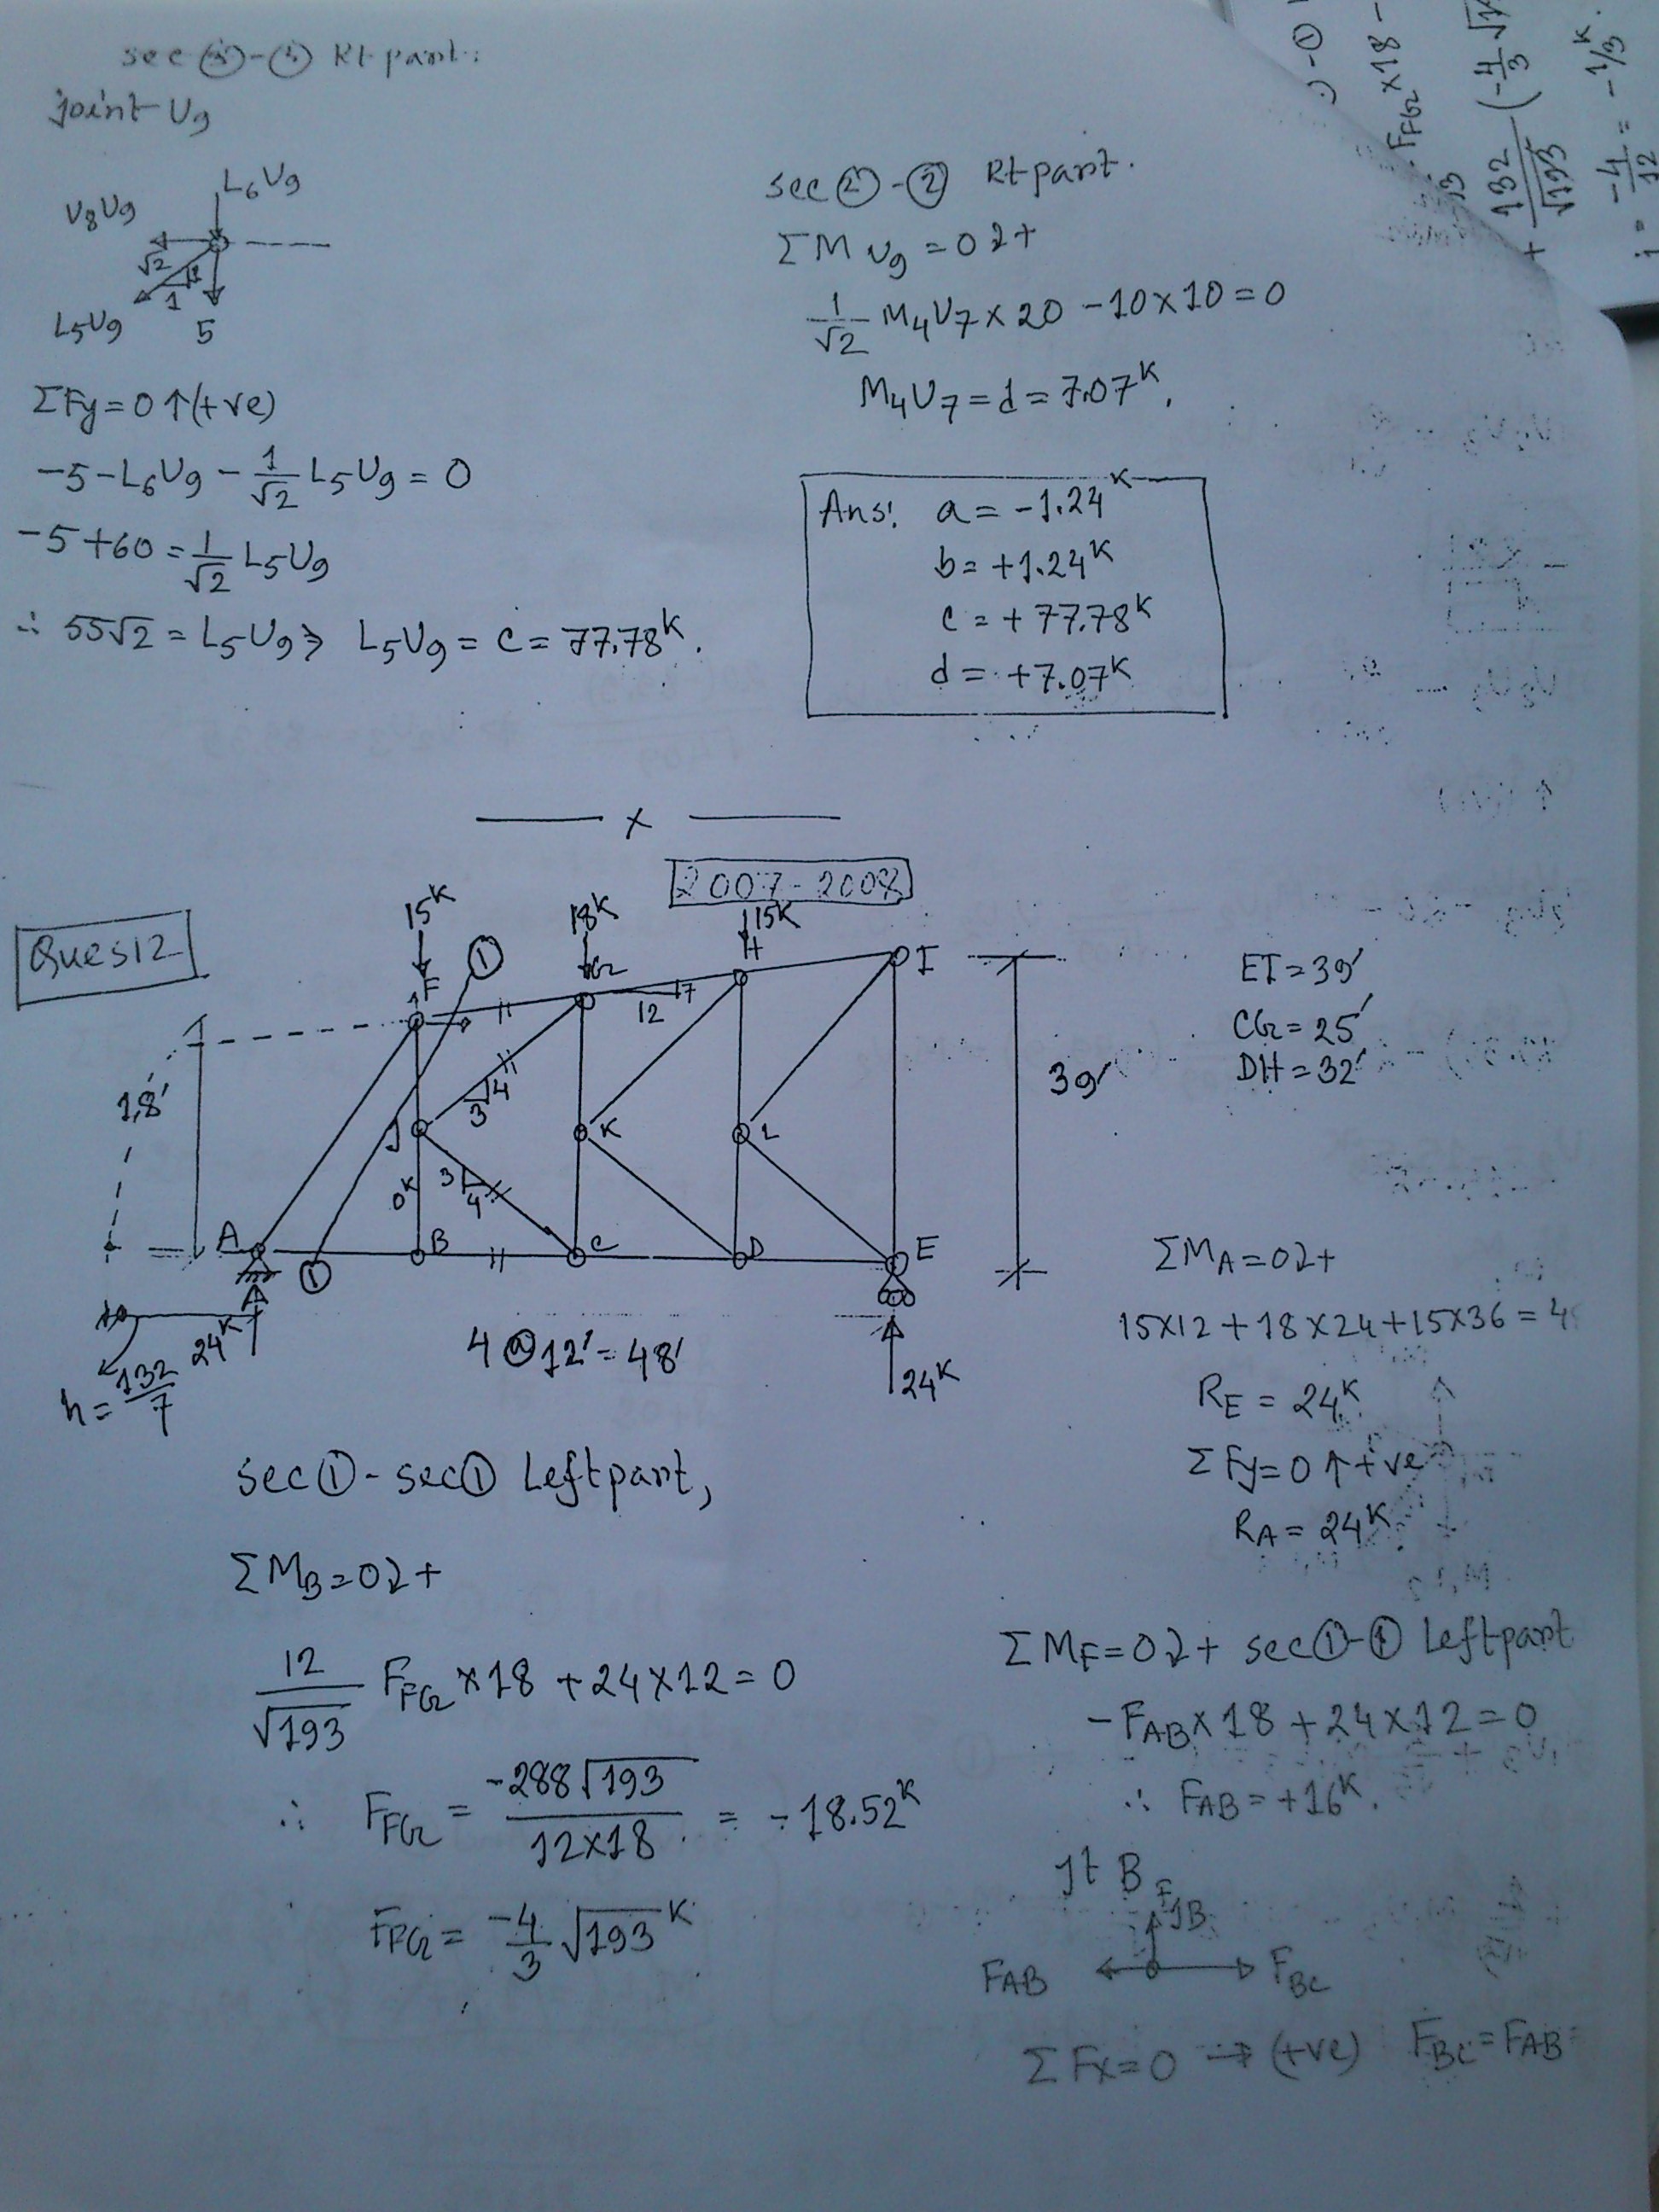 sec ③-③ Rt part:
joint U9
L6U9
U8U9
√2
1
1
L5U9
5
ΣFy=0↑(+ve)
-5-L6U9-1/√2 L5U9=0
-5+60=1/√2 L5U9
∴ 55√2=L5U9⇒ L5U9=c=77.78ᴷ.
sec ②-② Rt part.
ΣM U9=0↻+
1/√2 M4U7×20-10×10=0
M4U7=d=7.07ᴷ.
Ans: a=-1.24ᴷ
b=+1.24ᴷ
c=+77.78ᴷ
d=+7.07ᴷ
x
2007-2008
Ques12
15ᴷ
18ᴷ
15ᴷ
①
F
G
H
I
12
7
18'
3
4
J
K
L
3
4
0ᴷ
A
B
C
D
E
①
39'
EI=39'
CG=25'
DH=32'
24ᴷ
4@12'=48'
24ᴷ
h=132/7
ΣMA=0↻+
15×12+18×24+15×36=4
RE=24ᴷ
ΣFy=0↑+ve
RA=24ᴷ
sec①-sec① Left part,
ΣMB=0↻+
12/√193 FFG×18+24×12=0
∴ FFG=-288√193/12×18=-18.52ᴷ
FFG=-4/3√193ᴷ
ΣMF=0↻+ sec①-① Left part
-FAB×18+24×12=0
∴ FAB=+16ᴷ.
Jt B
FJB
FAB
FBC
ΣFx=0→(+ve) FBC=FAB=
)-①
FFG×18-
132/√193
(-4/3√1
-4/12=-1/3ᴷ.